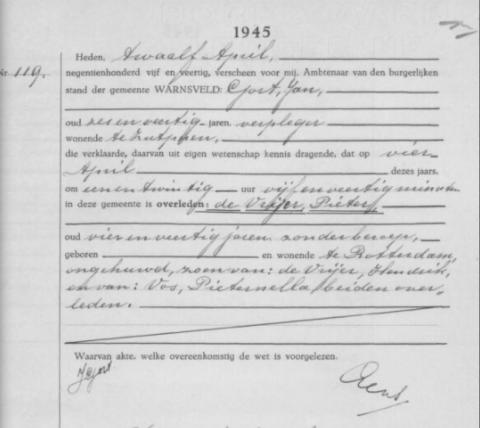 1945
Nr. 119.
Heden, twaalf April,
negentienhonderd vijf en veertig, verscheen voor mij, Ambtenaar van den burgerlijken
stand der gemeente WARNSVELD: Gort, Jan,
oud zes en veertig jaren, verpleger
wonende te Zutphen,
die verklaarde, daarvan uit eigen wetenschap kennis dragende, dat op vier
April dezes jaars,
om een en twintig uur vijf en veertig minuten
in deze gemeente is overleden: de Vrijer, Pieter,
oud vier en veertig jaren, zonder beroep,
geboren en wonende te Rotterdam,
ongehuwd, zoon van: de Vrijer, Hendrik,
en van: Vos, Pieternella, beiden over-
leden.
Waarvan akte, welke overeenkomstig de wet is voorgelezen.
JGort